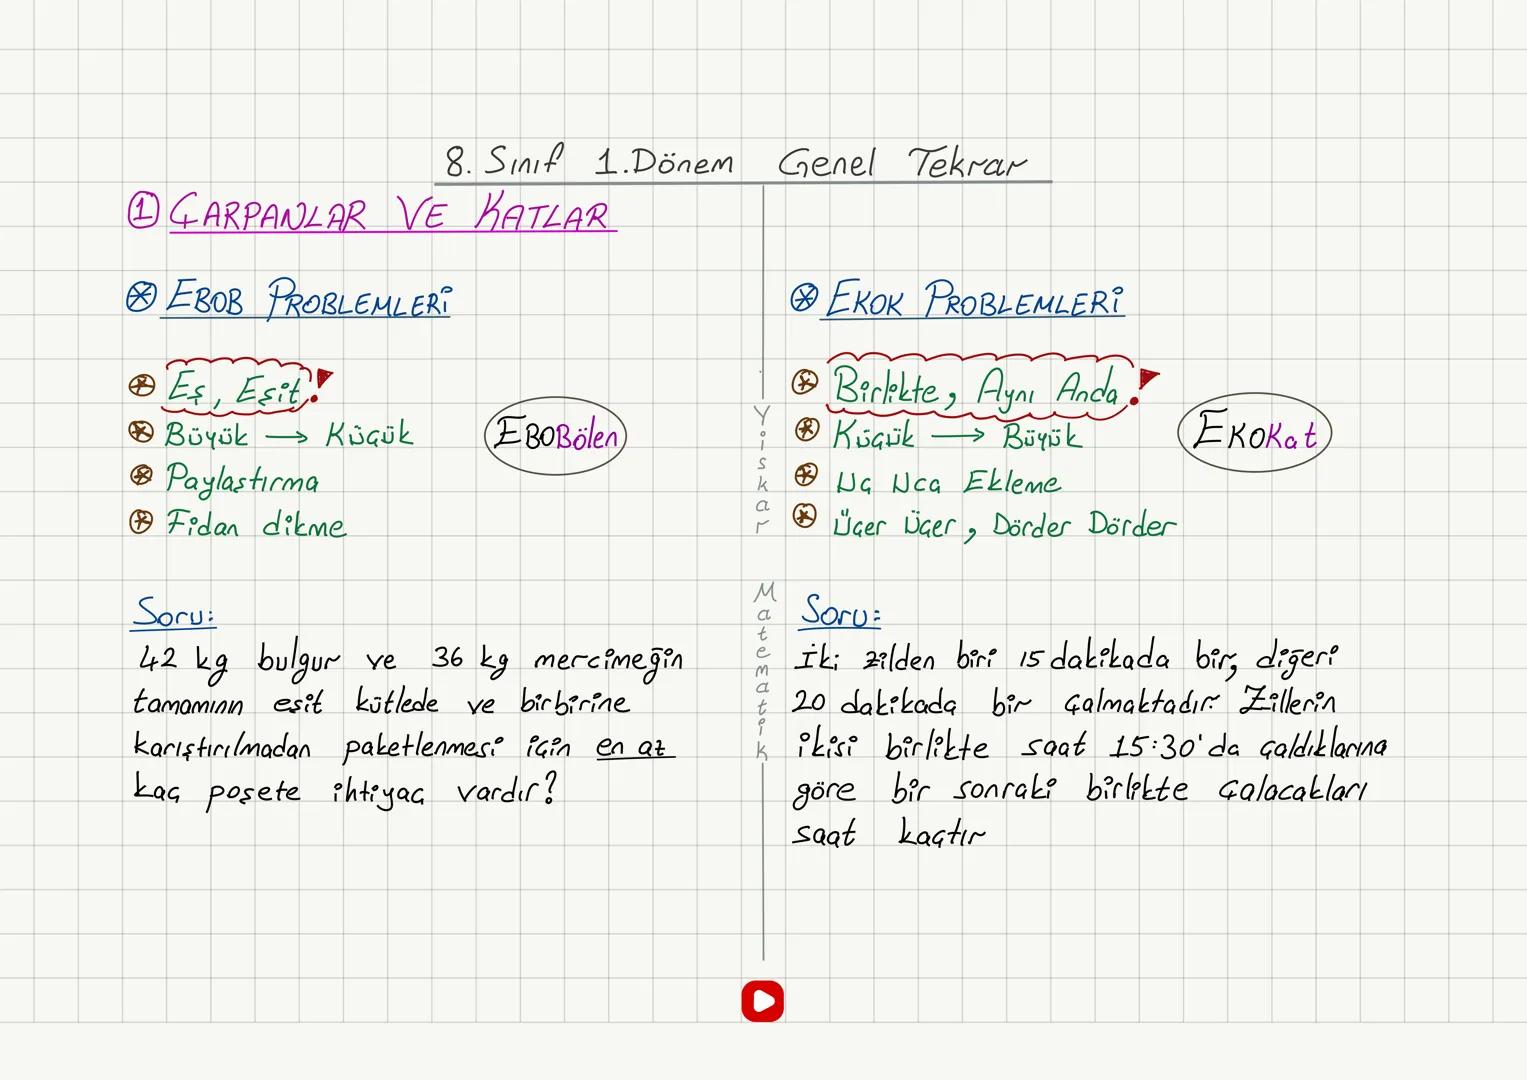 8. Sınıf 1.Dönem Genel Tekrar
1 ÇARPANLAR VE KATLAR
EBOB PROBLEMLERİ
Eş, Eşit!
Büyük → Küçük
Paylaştırma
Fidan dikme
EBOBölen
Soru:
42 kg bulgur ve 36 kg mercimeğin
tamamının eşit kütlede ve birbirine
karıştırılmadan paketlenmesi için en az
kaç poşete ihtiyaç vardır?
Yiskar Matematik
EKOK PROBLEMLERİ
Birlikte, Aynı Anda!
Küçük → Büyük
Uç Uca Ekleme
Üçer Üçer, Dörder Dörder
EKOKat
Soru:
İki zilden biri 15 dakikada bir, diğeri
20 dakikada bir çalmaktadır. Zillerin
ikisi birlikte saat 15:30'da çaldıklarına
göre bir sonraki birlikte çalacakları
saat kaçtır